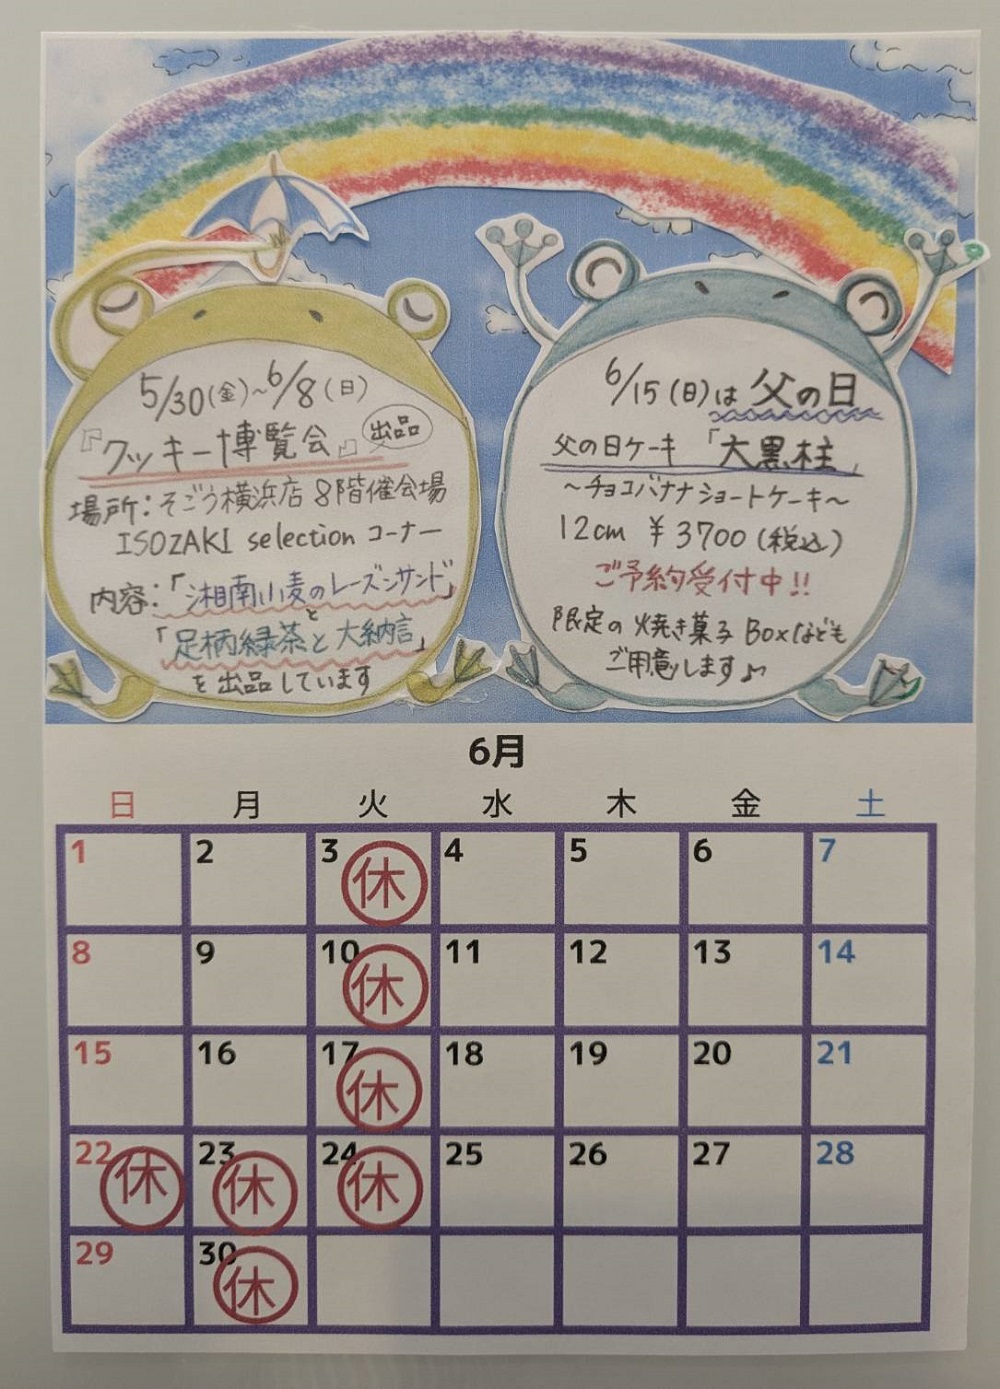 5/30(金)~6/8(日)
『クッキー博覧会』出品
場所:そごう横浜店 8階催会場
ISOZAKI selection コーナー
内容:「湘南小麦のレーズンサンド」
と
「足柄緑茶と大納言」
を出品しています
6/15(日)は父の日
父の日ケーキ「大黒柱」
～チョコバナナショートケーキ～
12cm ¥3700(税込)
ご予約受付中!!
限定の焼き菓子Boxなども
ご用意します♪
6月
日 月 火 水 木 金 土
1 2 3 休 4 5 6 7
8 9 10 休 11 12 13 14
15 16 17 休 18 19 20 21
22 休 23 休 24 休 25 26 27 28
29 30 休